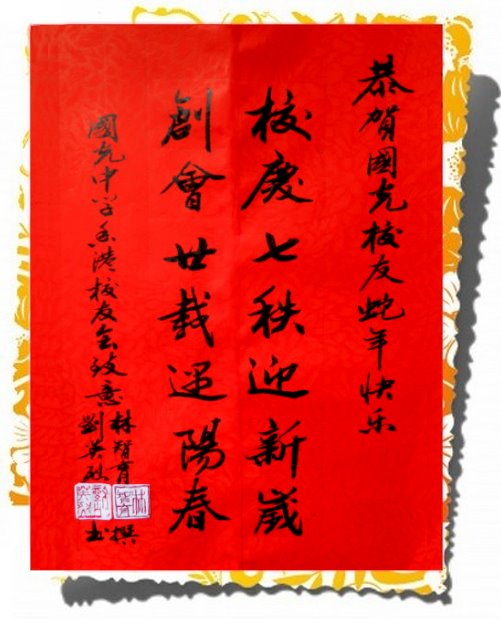 恭賀國光校友蛇年快乐
校慶七秩迎新歲
創會廿載陽春
國光中学香港校友会致意
林智育撰
劉英书